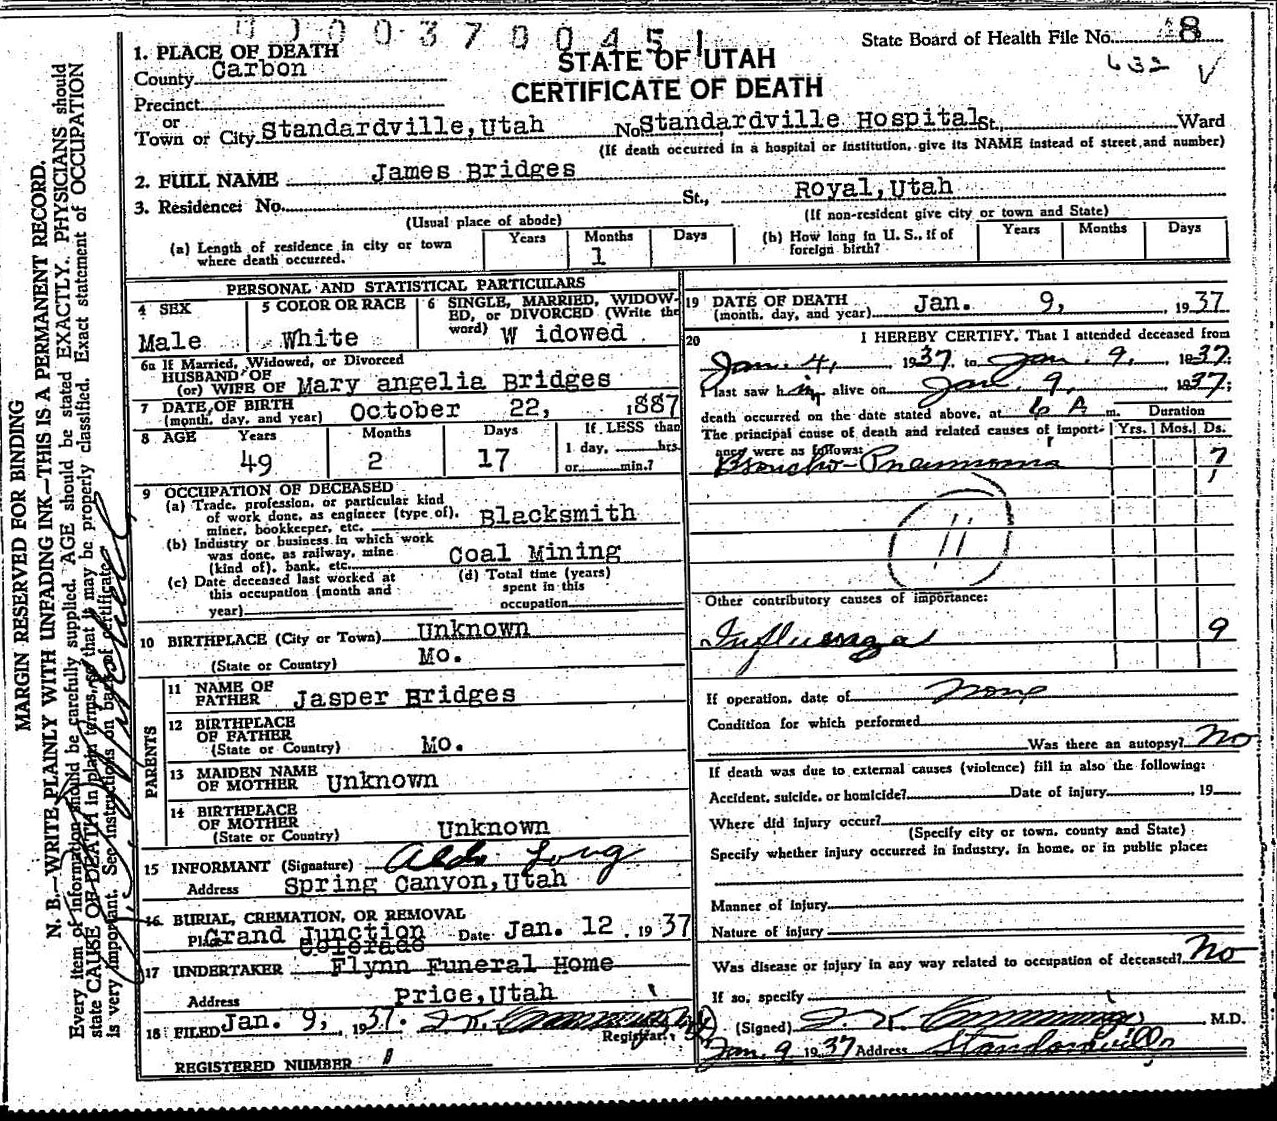 0 1 0 0 3 7 0 0 4 5 1
State Board of Health File No. 18
632 √
STATE OF UTAH
CERTIFICATE OF DEATH
1. PLACE OF DEATH
County Carbon
Precinct
or
Town or City Standardville, Utah No. Standardville Hospital St., Ward
(If death occurred in a hospital or institution, give its NAME instead of street and number)
2. FULL NAME James Bridges
3. Residence: No. St., Royal, Utah
(Usual place of abode) (If non-resident give city or town and State)
(a) Length of residence in city or town where death occurred. Years Months 1 Days
(b) How long in U. S., if of foreign birth? Years Months Days
PERSONAL AND STATISTICAL PARTICULARS
4 SEX Male
5 COLOR OR RACE White
6 SINGLE, MARRIED, WIDOWED, or DIVORCED (Write the word) W idowed
6a If Married, Widowed, or Divorced
HUSBAND OF
(or) WIFE OF Mary angelia Bridges
7 DATE OF BIRTH
(month, day, and year) October 22, 1887
8 AGE Years 49 Months 2 Days 17 If LESS than 1 day, hrs. or min.?
9 OCCUPATION OF DECEASED
(a) Trade, profession, or particular kind
of work done, as engineer (type of),
miner, bookkeeper, etc. Blacksmith
(b) Industry or business in which work
was done, as railway, mine
(kind of), bank, etc. Coal Mining
(c) Date deceased last worked at
this occupation (month and
year)
(d) Total time (years)
spent in this
occupation
10 BIRTHPLACE (City or Town) Unknown
(State or Country) Mo.
PARENTS
11 NAME OF
FATHER Jasper Bridges
12 BIRTHPLACE
OF FATHER
(State or Country) Mo.
13 MAIDEN NAME
OF MOTHER Unknown
14 BIRTHPLACE
OF MOTHER
(State or Country) Unknown
15 INFORMANT (Signature) Aldo Long
Address Spring Canyon, Utah
16 BURIAL, CREMATION, OR REMOVAL
Place Grand Junction Date Jan. 12, 1937
Colorado
17 UNDERTAKER Flynn Funeral Home
Address Price, Utah
18 FILED Jan. 9, 1937.
Registrar.
REGISTERED NUMBER 1
19 DATE OF DEATH
(month, day, and year) Jan. 9, 1937
20 I HEREBY CERTIFY, That I attended deceased from
Jan. 4, 1937, to Jan. 9, 1937;
I last saw him alive on Jan. 9, 1937;
death occurred on the date stated above, at 6 A m. Duration
The principal cause of death and related causes of importance were as follows: Yrs. Mos. Ds.
Broncho-Pneumonia 7
11
Other contributory causes of importance:
Influenza 9
If operation, date of none
Condition for which performed
Was there an autopsy? No
If death was due to external causes (violence) fill in also the following:
Accident, suicide, or homicide? Date of injury , 19
Where did injury occur?
(Specify city or town, county and State)
Specify whether injury occurred in industry, in home, or in public place:
Manner of injury
Nature of injury
Was disease or injury in any way related to occupation of deceased? No
If so, specify
(Signed) Cummings M.D.
Jan. 9 1937 Address Standardville
MARGIN RESERVED FOR BINDING
N. B.—WRITE PLAINLY WITH UNFADING INK—THIS IS A PERMANENT RECORD.
Every item of information should be carefully supplied. AGE should be stated EXACTLY. PHYSICIANS should
state CAUSE OF DEATH in plain terms, so that it may be properly classified. Exact statement of OCCUPATION
is very important. See instructions on back of certificate.